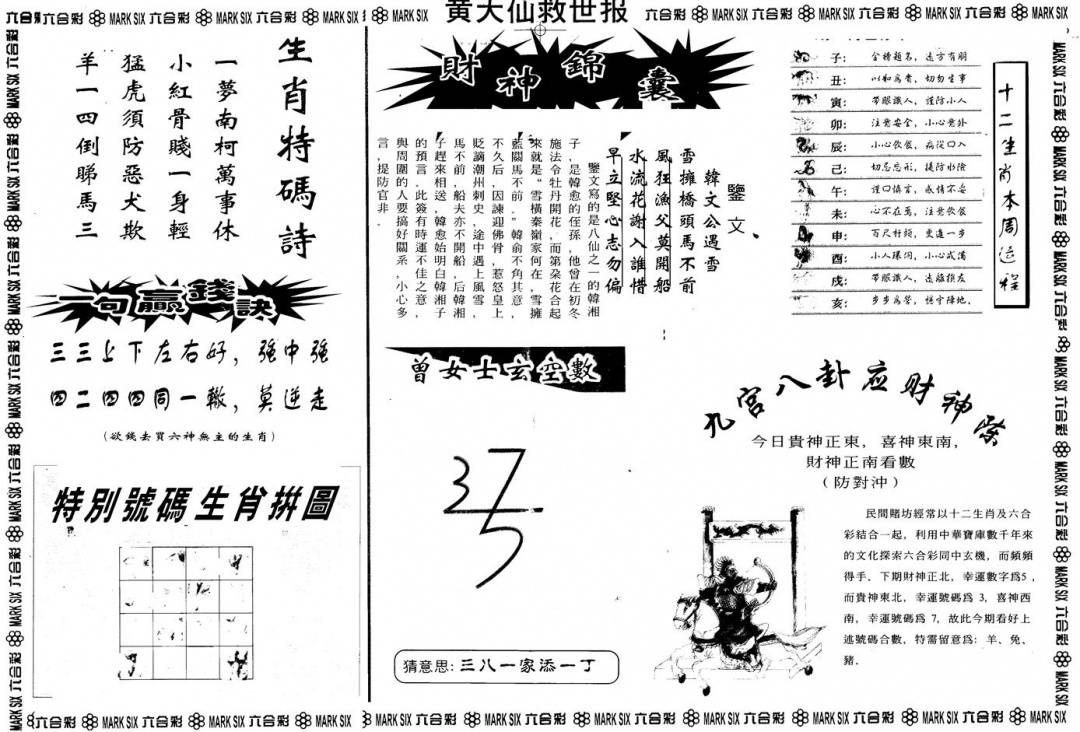 黄大仙救世报
六合彩 MARK SIX 六合彩 MARK SIX 六合彩 MARK SIX 六合彩 MARK SIX
六合彩 MARK SIX 六合彩 MARK SIX 六合彩 MARK SIX 六合彩 MARK SIX
生肖特碼詩
一夢南柯萬事休
小紅骨賤一身輕
猛虎須防惡犬欺
羊一四倒睇馬三
一句贏錢訣
三三上下左右好，強中強
四二四四同一轍，莫逆走
（欲錢去買六神無主的生肖）
特別號碼生肖拼圖
財神錦囊
鑒文
韓文公遇雪
雪擁橋頭馬不前
風狂漁父莫開船
水流花謝入誰惜
早立堅心志勿偏
鑒文寫的是八仙之一的韓湘
子，是韓愈的侄孫，他曾在初冬
施法令牡丹開花，而第朵花合起
來就是“雪橫秦嶺家何在，雪擁
藍關馬不前。”韓俞不角其意，
不久后，因諫迎佛骨，惹怒皇上，
貶謫潮州刺史，途中遇上風雪，
馬不前，船夫亦不開船，后韓湘
子趕來相送，韓愈始明白韓湘子
的預言。此簽有時運不佳之意，
與周圍的人要搞好關系，小心多
言，提防官非。
曾女士玄空數
37
5
猜意思：三八一家添一丁
十二生肖本周运程
子：金榜題名，遠方有朋
丑：以和爲貴，切勿生事
寅：帶眼識人，謹防小人
卯：注意安全，小心意外
辰：小心飲食，病從口入
己：切忌忘形，提防水險
午：謹口慎言，感情不妥
未：心不在焉，注意飲食
申：百尺杆頭，更進一步
酉：小人環伺，小心武滿
戌：帶眼識人，遠離損友
亥：步步爲營，穩守陣地。
九宮八卦应財神
今日貴神正東，喜神東南，
財神正南看數
（防對沖）
民間賭坊經常以十二生肖及六合
彩結合一起，利用中華寶庫數千年來
的文化探索六合彩同中玄機，而頻頻
得手．下期財神正北，幸運數字爲5，
而貴神東北，幸運號碼爲 3，喜神西
南，幸運號碼爲 7，故此今期看好上
述號碼合數，特需留意爲：羊、兔、
豬．
六合彩 MARK SIX 六合彩 MARK SIX 六合彩 MARK SIX 六合彩 MARK SIX 六合彩 MARK SIX 六合彩 MARK SIX 六合彩 MARK SIX 六合彩 MARK SIX 六合彩 MARK SIX